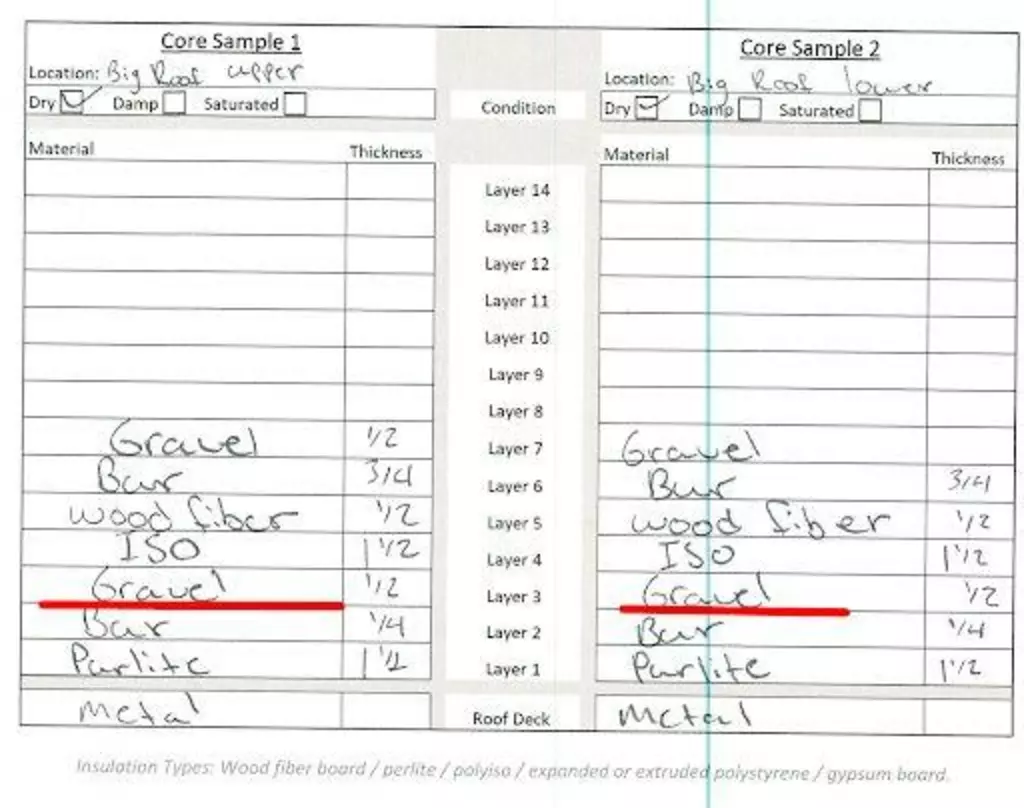 Core Sample 1
Core Sample 2
Location: Big Roof upper
Location: Big Roof lower
Dry Damp Saturated
Condition
Dry Damp Saturated
Material Thickness
Material Thickness
Layer 14
Layer 13
Layer 12
Layer 11
Layer 10
Layer 9
Layer 8
Gravel 1/2 Layer 7 Gravel
Bur 3/4 Layer 6 Bur 3/4
wood fiber 1/2 Layer 5 wood fiber 1/2
ISO 1 1/2 Layer 4 ISO 1 1/2
Gravel 1/2 Layer 3 Gravel 1/2
Bur 1/4 Layer 2 Bur 1/4
Parlite 1 1/2 Layer 1 Parlite 1 1/2
Metal Roof Deck Metal
Insulation Types: Wood fiber board / perlite / polyiso / expanded or extruded polystyrene / gypsum board.